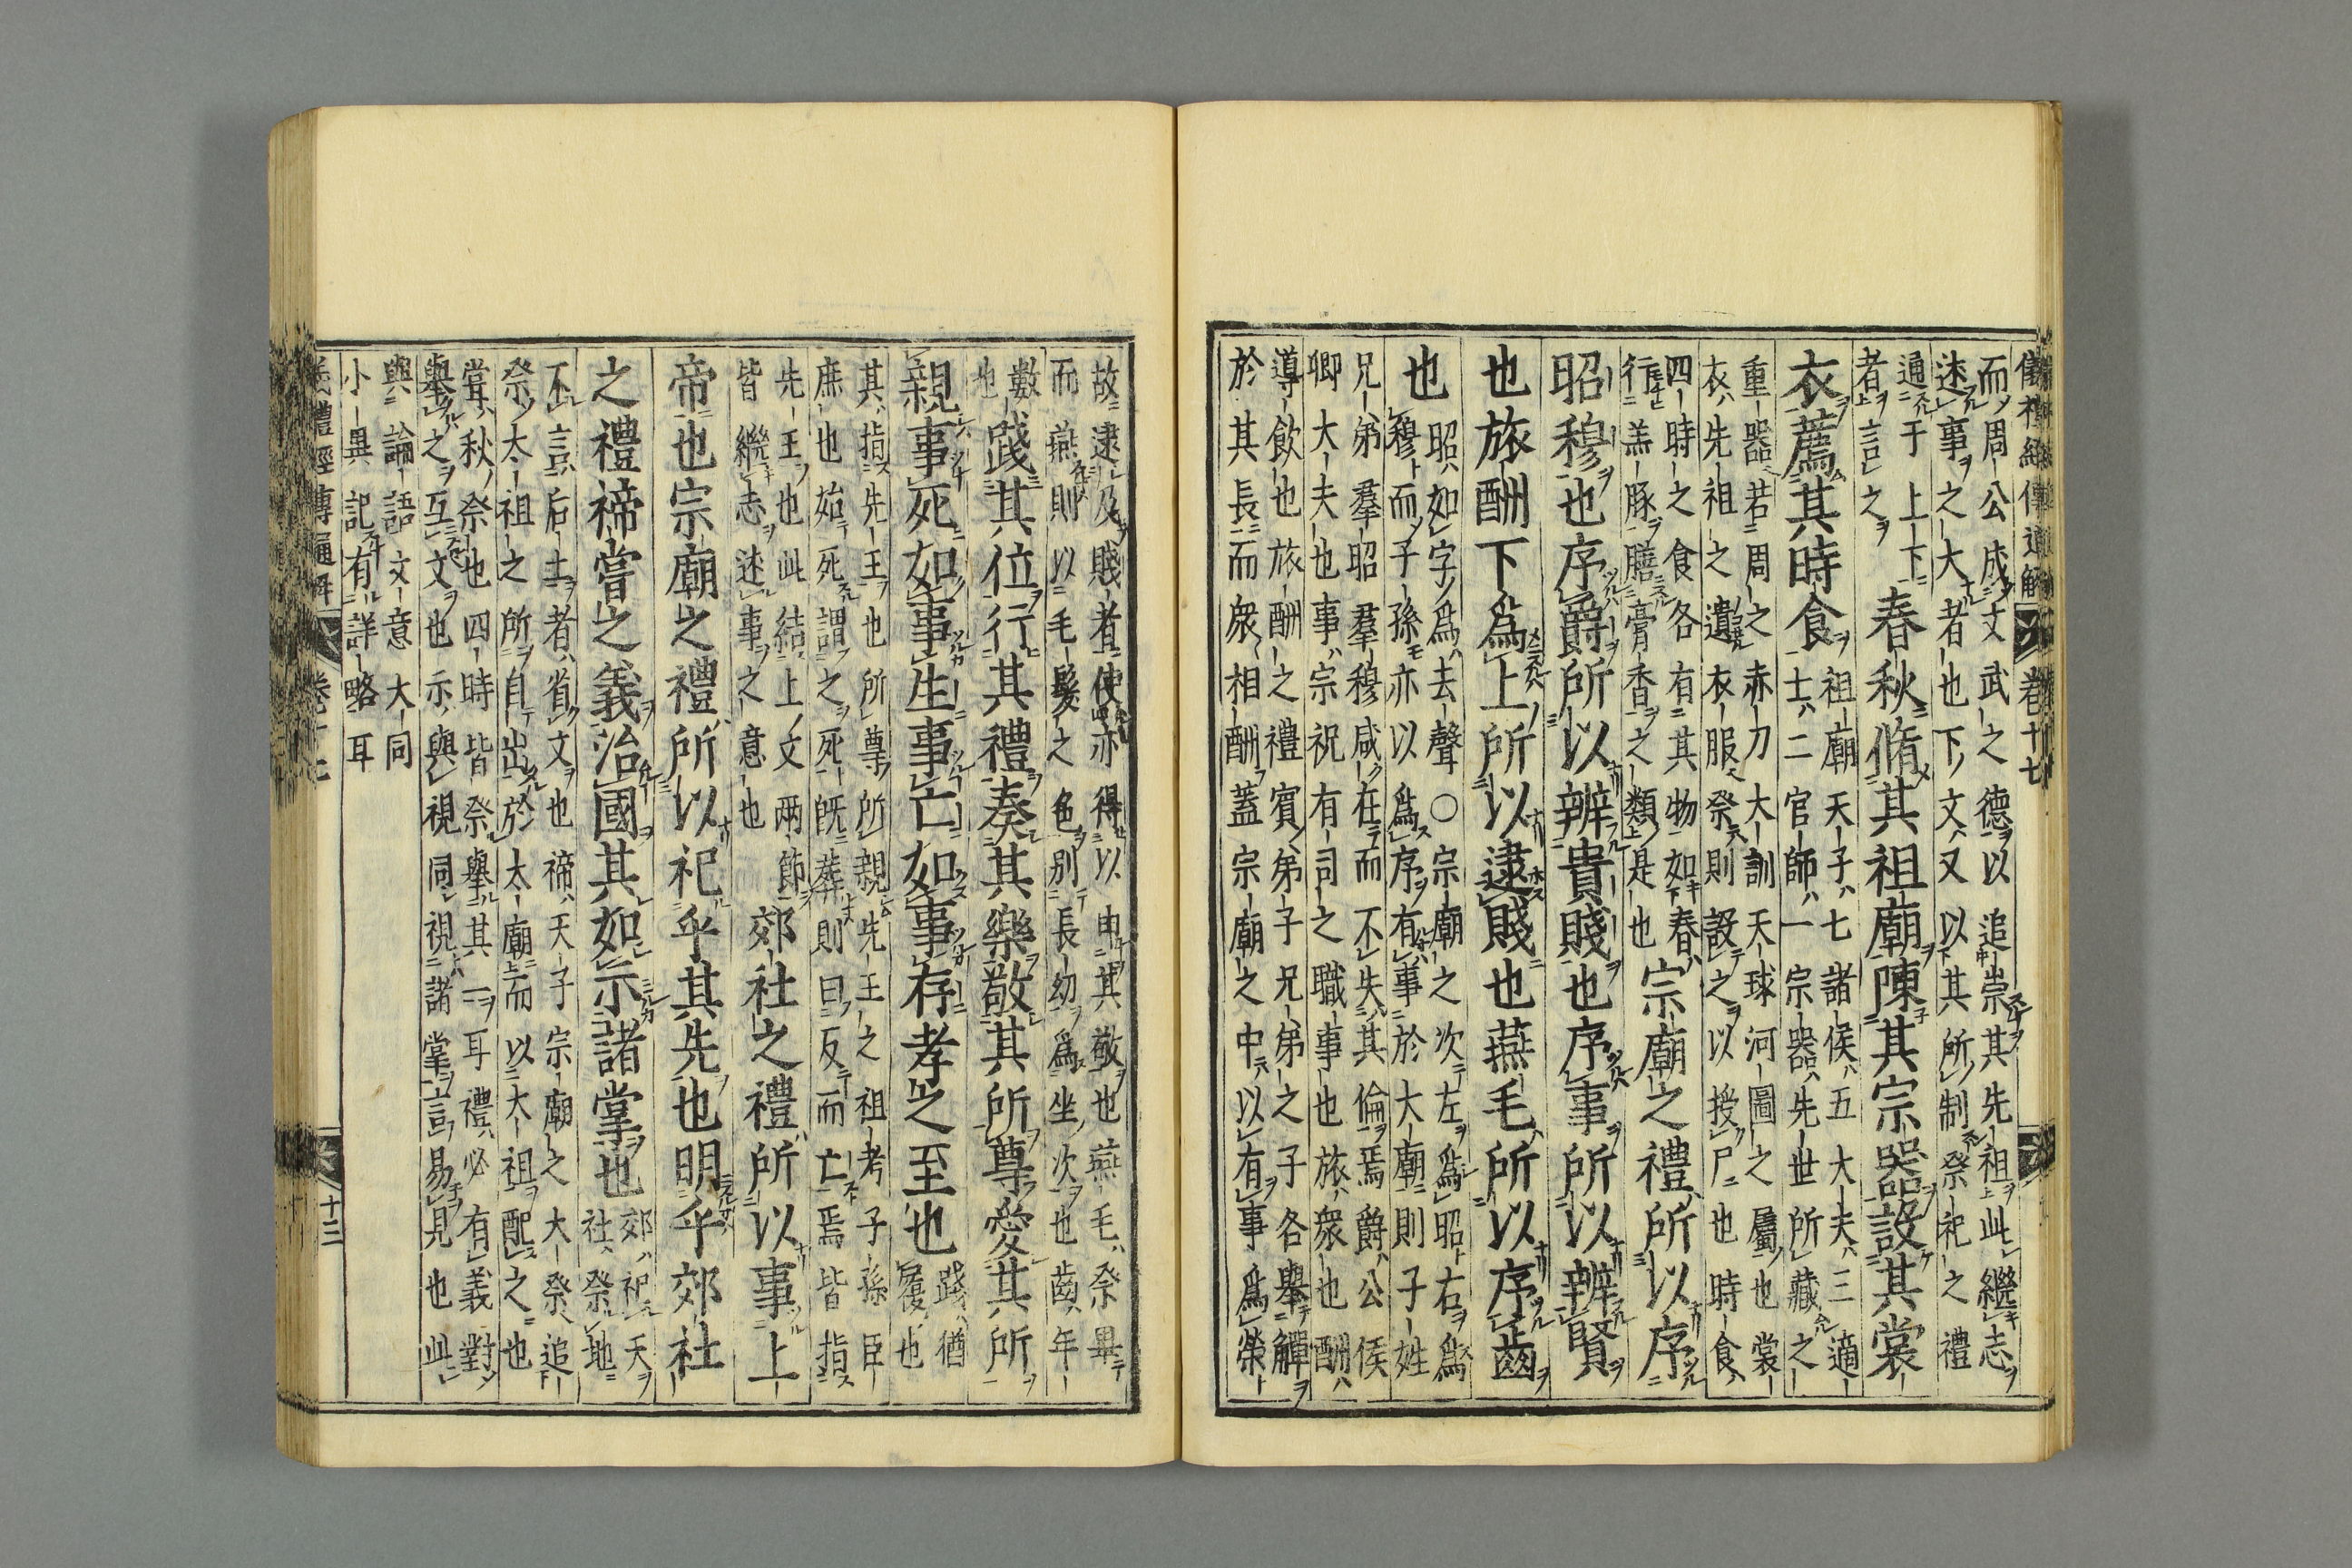 儀禮經傳通解 卷十七
而周公成文武之德以追崇其先祖此繼志
述事之大者也下文又以其所制祭祀之禮
通于上下
者言之
春秋脩其祖廟陳其宗器設其裳
衣薦其時食
祖廟天子七諸侯五大夫三適
士二官師一宗器先世所藏之
重器若周之赤刀大訓天球河圖之屬也裳
衣先祖之遺衣服祭則設之以授尸也時食
四時之食各有其物如春
行羔豚膳膏香之類是也
宗廟之禮所以序
昭穆也序爵所以辨貴賤也序事所以辨賢
也旅酬下爲上所以逮賤也燕毛所以序齒
也
昭如字爲去聲○宗廟之次左爲昭右爲
穆而子孫亦以爲序有事於大廟則子姓
兄弟羣昭羣穆咸在而不失其倫焉爵公侯
卿大夫也事宗祝有司之職事也旅衆也酬
導飲也旅酬之禮賓弟子兄弟之子各舉觶
於其長而衆相酬蓋宗廟之中以有事爲榮
故逮及賤者使亦得以申其敬也燕毛祭畢
而燕則以毛髮之色別長幼爲坐次也齒年
數
也
踐其位行其禮奏其樂敬其所尊愛其所
親事死如事生事亡如事存孝之至也
踐猶
履也
其指先王也所尊所親先王之祖考子孫臣
庶也始死謂之死既葬則曰反而亡焉皆指
先王也此結上文兩節
皆繼志述事之意也
郊社之禮所以事上
帝也宗廟之禮所以祀乎其先也明乎郊社
之禮禘嘗之義治國其如示諸掌也
郊祀天
社祭地
不言后土者省文也禘天子宗廟之大祭追
祭太祖之所自出於太廟而以太祖配之也
嘗秋祭也四時皆祭舉其一耳禮必有義對
舉之互文也示與視同視諸掌言易見也此
與論語文意大同
小異記有詳略耳
儀禮經傳通解 卷十七 十三